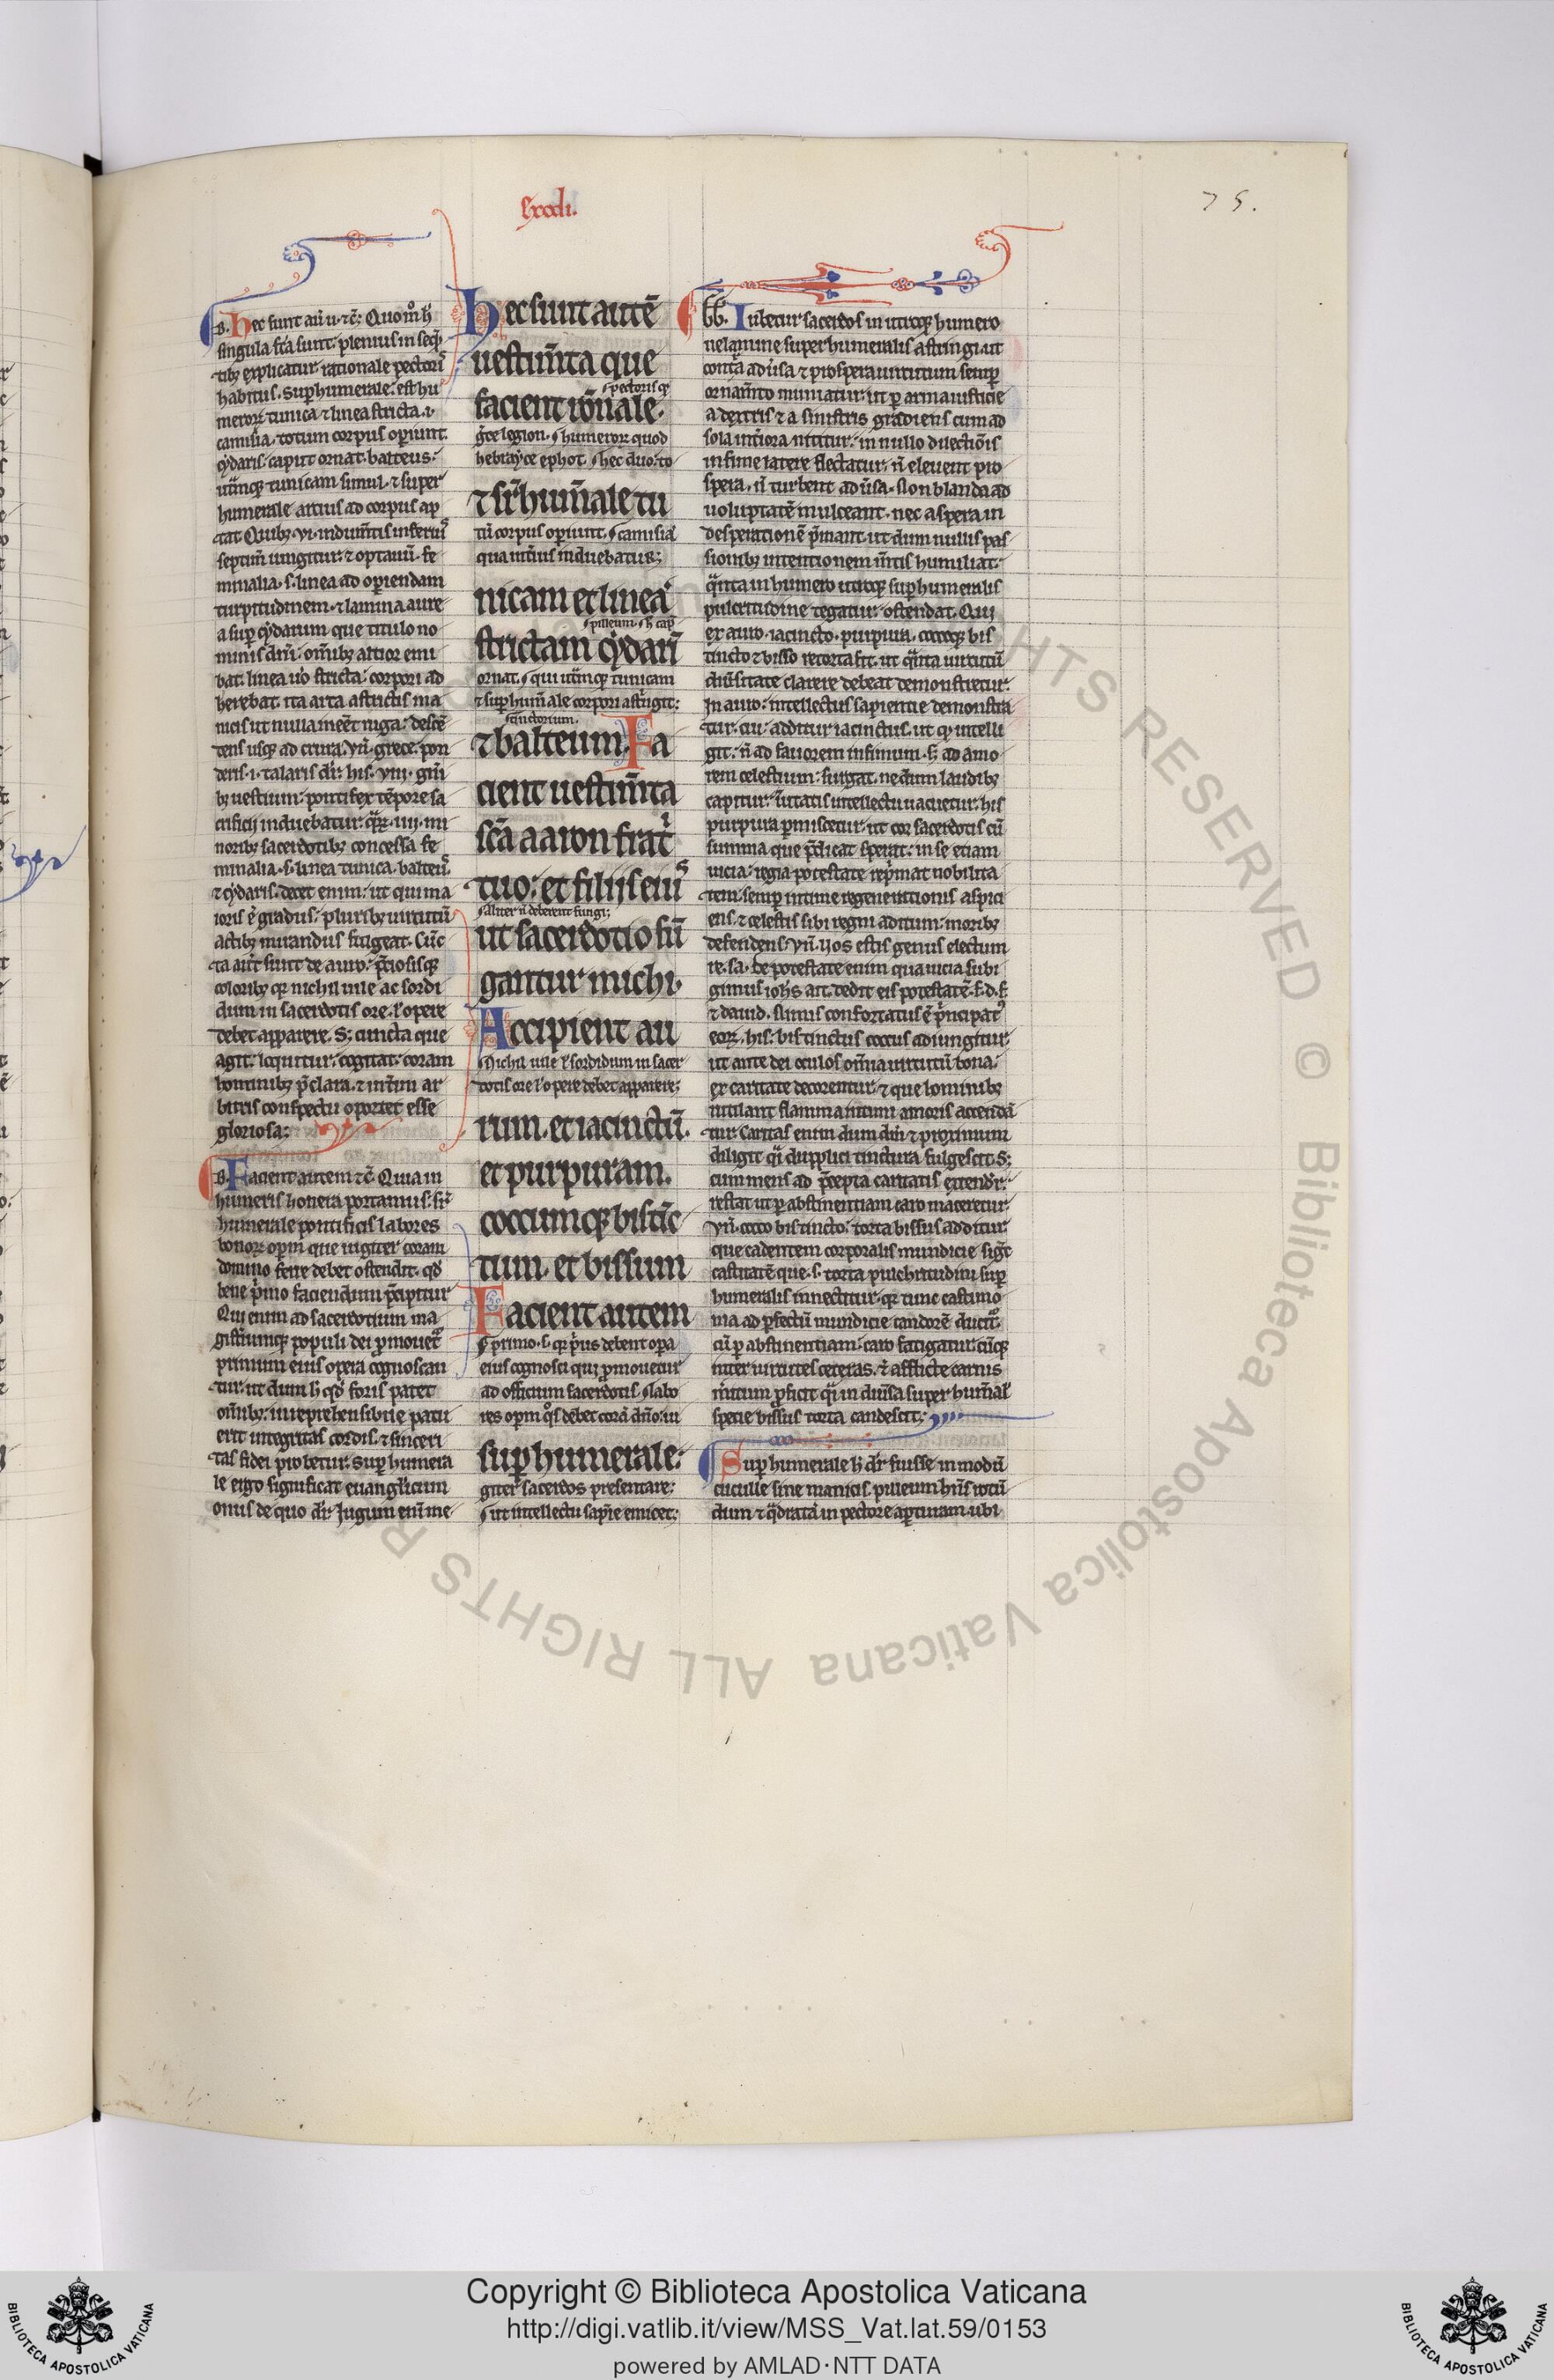 Exodi.
75.
B. Hec sunt aū u. ⁊c̄. Quom̊ h̾
singula fc̄a sunt. plenius in seq̄
tibꝫ explicatur. rationale pectoris
habitus. Suphumerale. est hu
meroꝝ tunica ⁊ linea stricta. i.
camisia. totum corpus operiunt.
cydaris. caput ornat. balteus.
utrīqꝫ tunicam simul. ⁊ super
humerale artius ad corpus ap
tat. Quibꝫ. vi. indumtis inferiꝰ
septim̄ iungitur. ⁊ octauū. fe
minalia. s. linea ad operiendam
turpitudinem. ⁊ lamina aure
a sup cydarim que titulo no
minis dm̄i. om̄ibꝫ altior emi
bat. linea uo stricta. corpori ad
herebat. ita arta astrictis ma
nicis ut nulla inēet ruga. descē
dens usqꝫ ad crura. Vn̄. grece. pon
deris. i. talaris dr̄. his. viii. gn̄i
bꝫ uestium. pontifex tēpore sa
crificij induebatur. qꝝ. iiij. mi
noribꝫ sacerdotibꝫ concessa. fe
minalia. s. linea tunica. balteus
⁊ cydaris. decet enim. ut qui ma
ioris ē gradus. pluribꝫ uirtutū
actibꝫ mirandus fulgeat. Cūc
ta aūt sunt de auro. p̄ciosisqꝫ
coloribꝫ qꝫ nichil uile ac sordi
dum in sacerdotis ore. ł opere
debet apparere. S; cuncta que
agit. loquitur. cogitat. coram
hominibꝫ p̄clara. ⁊ int̄im ar
bitris conspectu oportet esse
gloriosa.
B. Facient autem ⁊c̄. Quia in
humeris honera portamus. sr̄
humerale pontificis labores
bonoꝝ opm que iugiter coram
domino ferre debet ostendit. qd̾
bene p̄mo faciendum p̄cipitur
Qui enim ad sacerdotium ma
gist̄iumqꝫ populi dei p̄mouet̄
primum eius opera cognoscan
tur. ut dum h̾ qd̾ foris patet
om̄ibꝫ. irreprehensibile patu
erit integritas cordis. ⁊ sinceri
tas fidei probetur. Sup humera
le ergo significat euangl̄icum
onus de quo dr̄. Iugum enī me
Hec sunt autē
uestim̄ta que
pectoris qꝫ
facient rōn̄ale.
ḡce legion. humeroꝝ quod
hebrayce ephot. hec duo. to
⁊ sr̄hum̄ale tu
tū corpus operiunt. camisia
qua int̄ius induebatur.
nicam et lineā
pilleum. h̾ cap̄
strictam cydari
ornat. qui utrīqꝫ tunicam
⁊ suphum̄ale corpori astrīgit.
cinctorium.
⁊ balteum. Fa
cient uestim̄ta
sc̄a aaron frat̾i
tuo. et filijs eiuꝰ
aliter n̄ deberent fungi.
ut sacerdotio fū
gantur michi.
Accipient au
Nichil uile ł sordidum in sacer
dotis ore ł opere debet apparere.
rum. et iacinctū.
et purpuram.
coccumqꝫ bistīc
tum. et bissum
Facient autem
primo. s. qꝫ p̄us debent opa
eius cognosci qui p̄mouetur
ad officium sacerdotis. labo
res opm qͦs debet corā dn̄o. iu
suphumerale.
giter sacerdos presentare.
ut intellectu sapīe emicet.
bb. Iubetur sacerdos in utroqꝫ humero
uelamine superhumeralis astringi. ut
contra adūsa ⁊ prospera uirtutum semp
ornam̄to muniatur. ut p arma iusticie
a dextris ⁊ a sinistris gradiens cum ad
sola int̄iora nititur. in nullo dilectōis
infime latere flectatur. n̄ eleuent pro
spera. n̄ turbent adūsa. Non blanda ad
uoluptatē mulceant. nec aspera in
desperationē p̄mant. ut dum nullis pas
sionibꝫ intentionem m̄tis humiliat.
q̄nta in humero utroqꝫ suphumeralis
pulcritudine tegatur. ostendat. Qui
ex auro. iacincto. purpura. coccoqꝫ bis
tincto ⁊ bisso retorta fit. ut q̄nta uirtutū
diūsitate clarere debeat demonstretur.
In auro. intellectus sapientie demonstra
tur. cui additur iacinctus. ut qꝫ intelli
git. n̄ ad fauorem infimum. s̾ ad amo
rem celestium. surgat. ne dum laudibꝫ
capitur. u̾itatis intellectu uacuetur. his
purpura p̄miscetur. ut cor sacerdotis cū
summa que p̄dicat sperat. in se etiam
uicia. regia potestate rep̄mat nobilita
tem. semp intime regenerationis aspici
ens. ⁊ celestis sibi regni aditum. moribꝫ
defendens. Vn̄. uos estis genus electum
re. sa. De potestate enim qua uicia subi
gimus iohs̄ ait. dedit eis potestatē. f. d. f.
⁊ dauid. Nimis confortatus ē p̄ncipatꝰ
eoꝝ. his. bis tinctus coccus adiungitur.
ut ante dei oculos om̄ia uirtutū bona.
ex caritate decorentur. ⁊ que hominibꝫ
rutilant flamma intimi amoris accendā
tur. Caritas enim dum dm̄ ⁊ proximum
diligit q̄i dupplici tinctura fulgescit. S;
cum mens ad p̄cepta caritatis extendr̄.
restat ut p abstinentiam caro maceretur.
Vn̄. cocco bis tincto. torta bissus additur
que cadentem corporalis mundicie sigc̄
castitatē que. s. torta pulchritudini sup
humeralis innectitur. qꝫ tunc castimo
nia ad p̄fectū mundicie candorē ducit̾.
cū p abstinentiam. caro fatigatur. cūqꝫ
inter uirtutes ceteras. ⁊ afflicte carnis
m̄itum p̄ficit q̄i in diūsa super hum̄al̾
specie bissus torta candescit.
Suphumerale h̾ dr̄ fuisse in modū
cuculle sine manicis. pilleum hn̄s rotū
dum ⁊ q̄dratā in pectore apturam. ubi